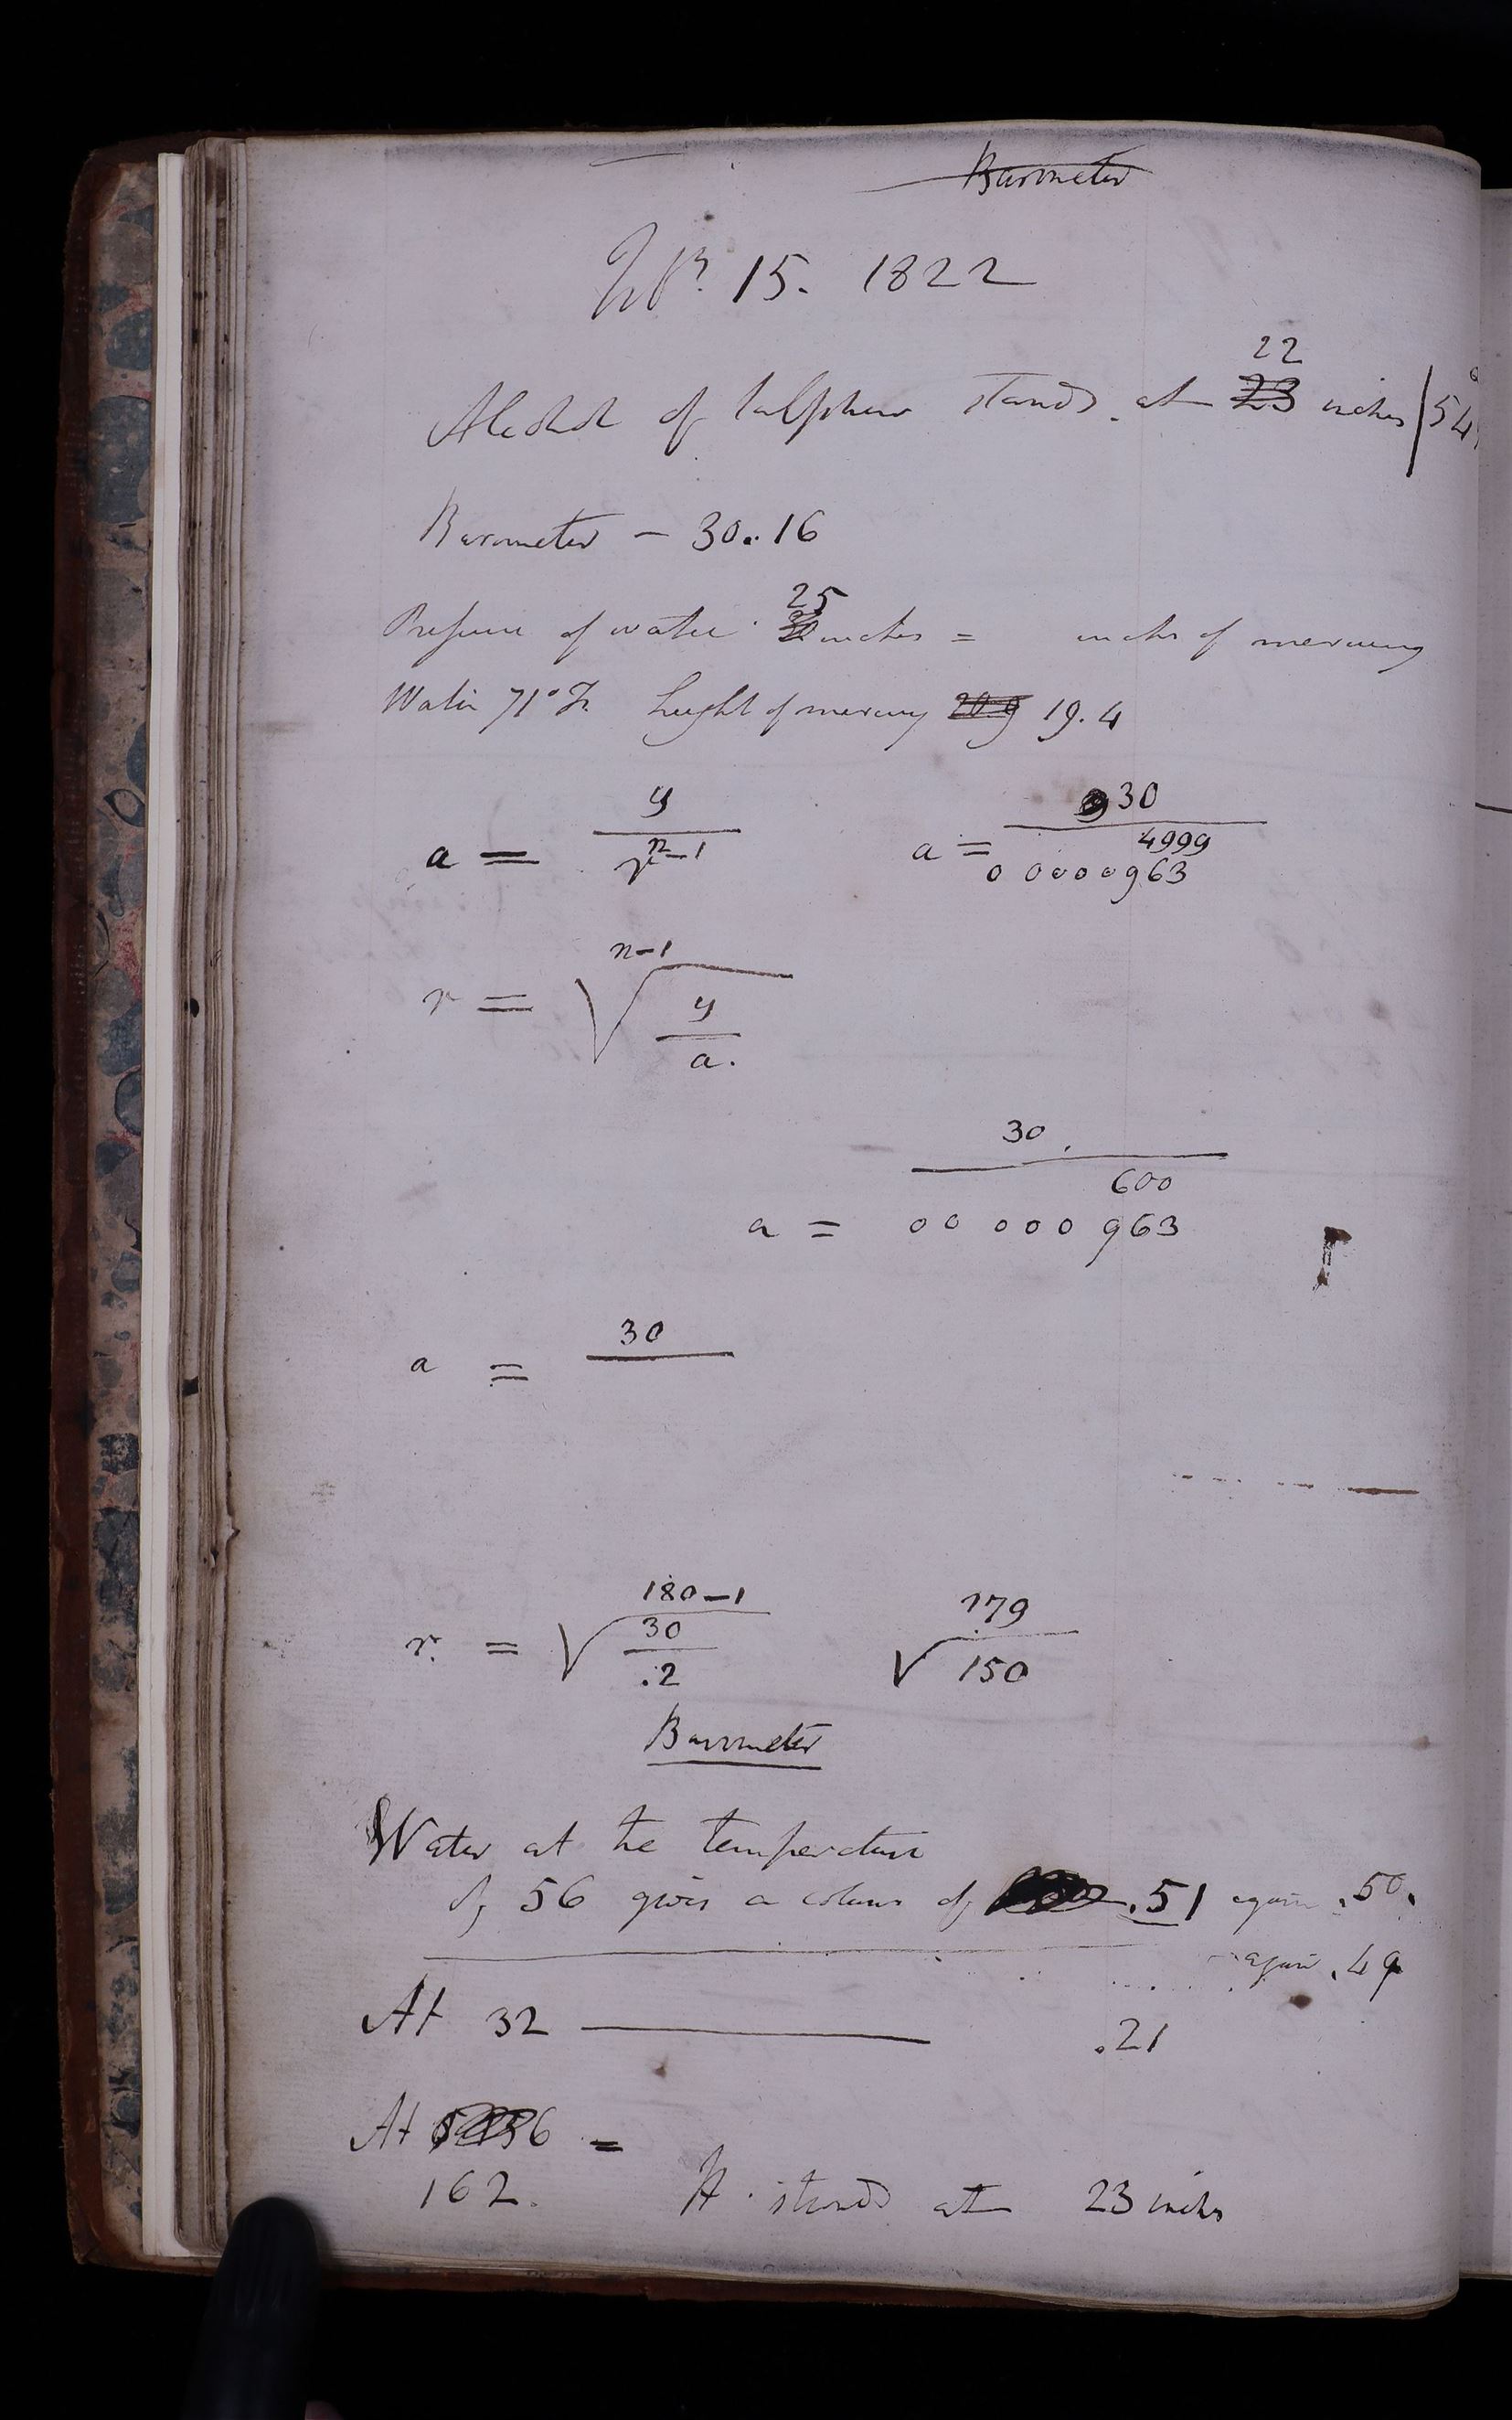 Barometer
15. 1822
22
Alcohol of Sulphur stands at 23 inches | 54
Barometer — 30.16
25
Pressure of water 30 inches = inches of mercury
Water 71° F. height of mercury 20.9 19.4
a = y / r^n-1    a = 30 / 0 0000963^4999
r = n-1 √ y / a.
a = 30. / 00 000963^600
a = 30
r. = 180-1 √ 30 / .2    179 √ 150
Barometer
Water at the temperature
of 56 gives a column of .51 again .50.
again .49
At 32 — .21
At 56 =
162. It stands at 23 inches